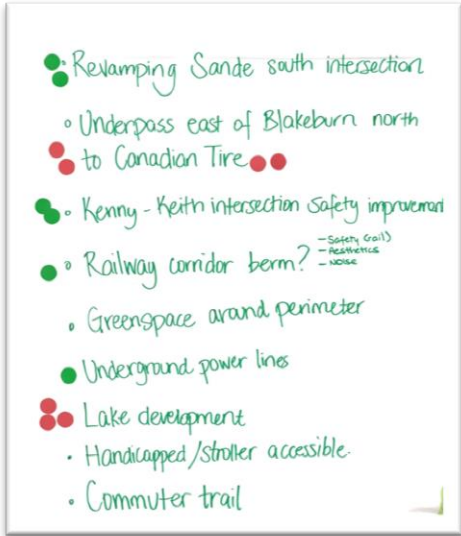 Revamping Sande south intersection
Underpass east of Blakeburn north
to Canadian Tire
Kenny-Keith intersection safety improvement
Railway corridor berm? - Safety (rail)
- Aesthetics
- Noise
Greenspace around perimeter
Underground power lines
Lake development
Handicapped/stroller accessible.
Commuter trail